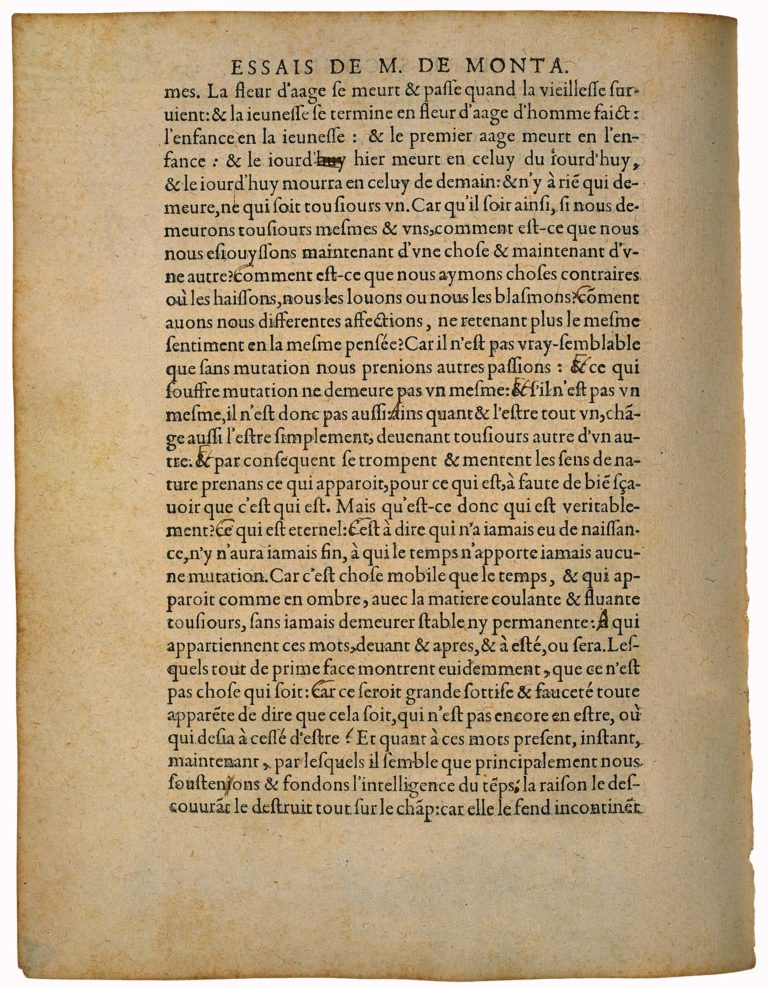 ESSAIS DE M. DE MONTA.
mes. La fleur d'aage ſe meurt & paſſe quand la vieilleſſe ſur-
uient: & la ieuneſſe ſe termine en fleur d'aage d'homme faict:
l'enfance en la ieuneſſe : & le premier aage meurt en l'en-
fance : & le iourd'huy hier meurt en celuy du iourd'huy,
& le iourd'huy mourra en celuy de demain: & n'y à riẽ qui de-
meure, ne qui ſoit touſiours vn. Car qu'il ſoit ainſi, ſi nous de-
meurons touſiours meſmes & vns, comment eſt-ce que nous
nous eſiouyſſons maintenant d'vne choſe & maintenant d'v-
ne autre? Comment eſt-ce que nous aymons choſes contraires
où les haiſſons, nous les louons ou nous les blaſmons? Cõment
auons nous differentes affections, ne retenant plus le meſme
ſentiment en la meſme penſée? Car il n'eſt pas vray-ſemblable
que ſans mutation nous prenions autres paſſions : & ce qui
ſouffre mutation ne demeure pas vn meſme: & s'il n'eſt pas vn
meſme, il n'eſt donc pas auſſi: Ains quant & l'eſtre tout vn, chã-
ge auſſi l'eſtre ſimplement, deuenant touſiours autre d'vn au-
tre: & par conſequent ſe trompent & mentent les ſens de na-
ture prenans ce qui apparoit, pour ce qui eſt, à faute de biẽ ſça-
uoir que c'eſt qui eſt. Mais qu'eſt-ce donc qui eſt veritable-
ment? Ce qui eſt eternel: C'eſt à dire qui n'a iamais eu de naiſſan-
ce, n'y n'aura iamais fin, à qui le temps n'apporte iamais aucu-
ne mutation. Car c'eſt choſe mobile que le temps, & qui ap-
paroit comme en ombre, auec la matiere coulante & fluante
touſiours, ſans iamais demeurer ſtable ny permanente: A qui
appartiennent ces mots, deuant & apres, & à eſté, ou ſera. Leſ-
quels tout de prime face montrent euidemment, que ce n'eſt
pas choſe qui ſoit: Car ce ſeroit grande ſottiſe & fauceté toute
apparẽte de dire que cela ſoit, qui n'eſt pas encore en eſtre, où
qui deſia à ceſſé d'eſtre ! Et quant à ces mots preſent, inſtant,
maintenant, par leſquels il ſemble que principalement nous
ſouſtenions & fondons l'intelligence du tẽps; la raiſon le deſ-
couurãt le deſtruit tout ſur le chãp: car elle le fend incontinẽt